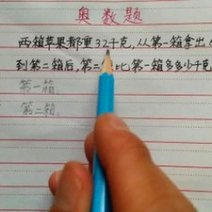 奥数题
两箱苹果都重32千克,从第一箱拿出
到第二箱后,第二 比第一箱多多少千克
第一箱
第二箱